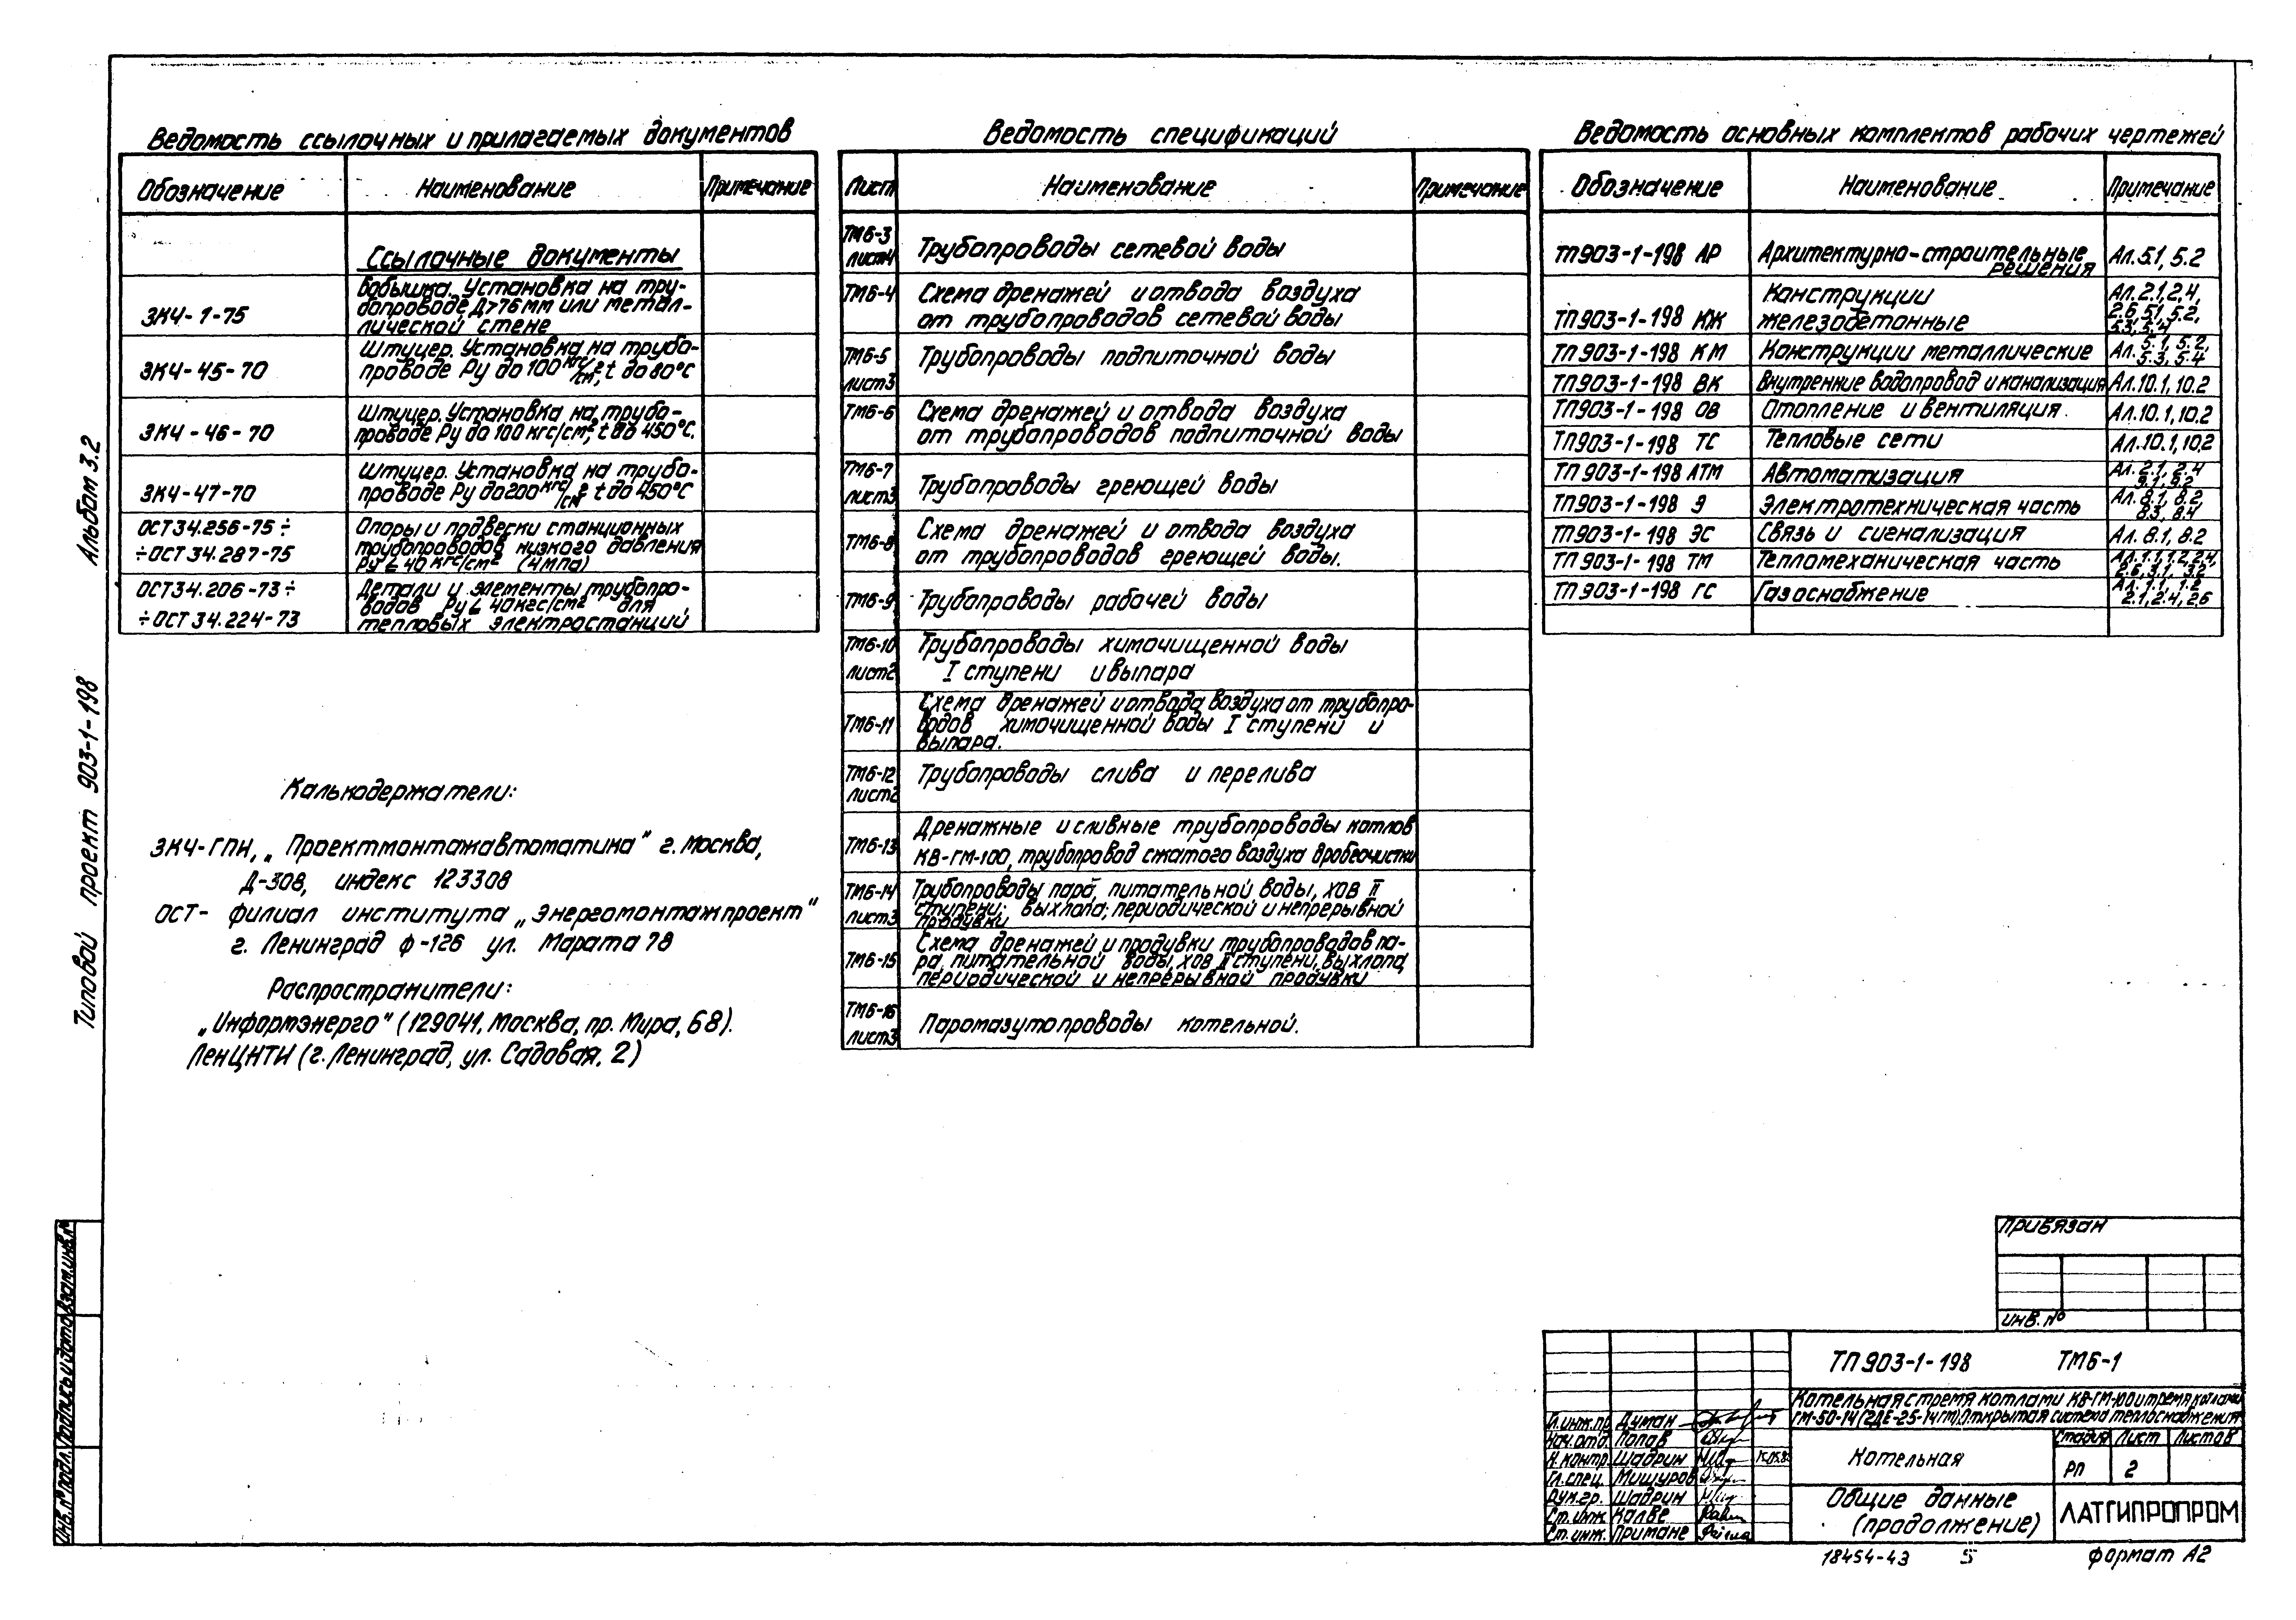 Ведомость ссылочных и прилагаемых документов
Обозначение Наименование Примечание
Ссылочные документы
ЗКЧ-1-75
Бобышка. Установка на тру-
бопроводе Д>76мм или метал-
лической стене
ЗКЧ-45-70
Штуцер. Установка на трубо-
проводе Ру до 100 кгс/см², t до 80°С
ЗКЧ-46-70
Штуцер. Установка на трубо-
проводе Ру до 100 кгс/см², t до 450°С.
ЗКЧ-47-70
Штуцер. Установка на трубо-
проводе Ру до 200 кгс/см², t до 450°С
ОСТ34.256-75 ÷
÷ОСТ 34.287-75
Опоры и подвески станционных
трубопроводов низкого давления
Ру ∠ 40 кгс/см² (4мпа)
ОСТ34.206-73÷
÷ОСТ 34.224-73
Детали и элементы трубопро-
водов Ру∠ 40кгс/см² для
тепловых электростанций
Калькодержатели:
ЗКЧ-ГПИ, „Проектмонтажавтоматика" г. Москва,
Д-308, индекс 123308
ОСТ- филиал института „Энергомонтажпроект"
г. Ленинград ф-126 ул. Марата 78
Распространители:
„Информэнерго" (129041, Москва, пр. Мира, 68).
ЛенЦНТИ (г. Ленинград, ул. Садовая, 2)
Ведомость спецификаций
Лист Наименование Примечание
ТМ6-3
лист4
Трубопроводы сетевой воды
ТМ6-4
Схема дренажей и отвода воздуха
от трубопроводов сетевой воды
ТМ6-5
лист3
Трубопроводы подпиточной воды
ТМ6-6
Схема дренажей и отвода воздуха
от трубопроводов подпиточной воды
ТМ6-7
лист3
Трубопроводы греющей воды
ТМ6-8
Схема дренажей и отвода воздуха
от трубопроводов греющей воды.
ТМ6-9
Трубопроводы рабочей воды
ТМ6-10
лист2
Трубопроводы химочищенной воды
I ступени и выпара
ТМ6-11
Схема дренажей и отвода воздуха от трубопро-
водов химочищенной воды I ступени и
выпара.
ТМ6-12
лист2
Трубопроводы слива и перелива
ТМ6-13
Дренажные и сливные трубопроводы котлов
КВ-ГМ-100, трубопровод сжатого воздуха дробеочистки
ТМ6-14
лист3
Трубопроводы пара, питательной воды, ХОВ II
ступени; выхлопа; периодической и непрерывной
продувки
ТМ6-15
Схема дренажей и продувки трубопроводов па-
ра, питательной воды, ХОВ II ступени, выхлопа,
периодической и непрерывной продувки
ТМ6-16
лист3
Паромазутопроводы котельной.
Ведомость основных комплектов рабочих чертежей
Обозначение Наименование Примечание
ТП903-1-198 АР Архитектурно-строительные Ал.5.1, 5.2
решения
ТП903-1-198 КЖ
Конструкции
железобетонные
Ал.2.1, 2.4,
2.6, 5.1, 5.2,
5.3, 5.4
ТП 903-1-198 КМ Конструкции металлические Ал. 5.1, 5.2,
5.3, 5.4
ТП903-1-198 ВК Внутренние водопровод и канализация Ал.10.1, 10.2
ТП903-1-198 ОВ Отопление и вентиляция. Ал.10.1, 10.2
ТП903-1-198 ТС Тепловые сети Ал.10.1, 10.2
ТП 903-1-198 АТМ Автоматизация Ал. 2.1, 2.4
9.1, 9.2
ТП903-1-198 Э Электротехническая часть Ал. 8.1, 8.2
8.3, 8.4
ТП903-1-198 ЭС Связь и сигнализация Ал. 8.1, 8.2
ТП 903-1-198 ТМ Тепломеханическая часть Ал.1.1, 1.2, 2.4,
2.6, 3.1, 3.2
ТП 903-1-198 ГС Газоснабжение Ал. 1.1, 1.2
2.1, 2.4, 2.6
Альбом 3.2
Типовой проект 903-1-198
Инв.№подл. Подпись и дата Взам.инв.№
Привязан
Инв. №
ТП 903-1-198 ТМ6-1
Котельная с тремя котлами КВ-ГМ-100 и тремя котлами
ГМ-50-14(2ДЕ-25-14ГМ). Открытая система теплоснабжения
Гл.инж.пр. Думан
Нач.отд. Попов
Н.контр. Шадрин
Гл.спец. Мишуров
Рук.гр. Шадрин
Ст.инж. Калве
Ст.инж. Примане
Котельная
Стадия Лист Листов
РП 2
Общие данные
(продолжение)
ЛАТГИПРОПРОМ
18454-43 5 формат А2